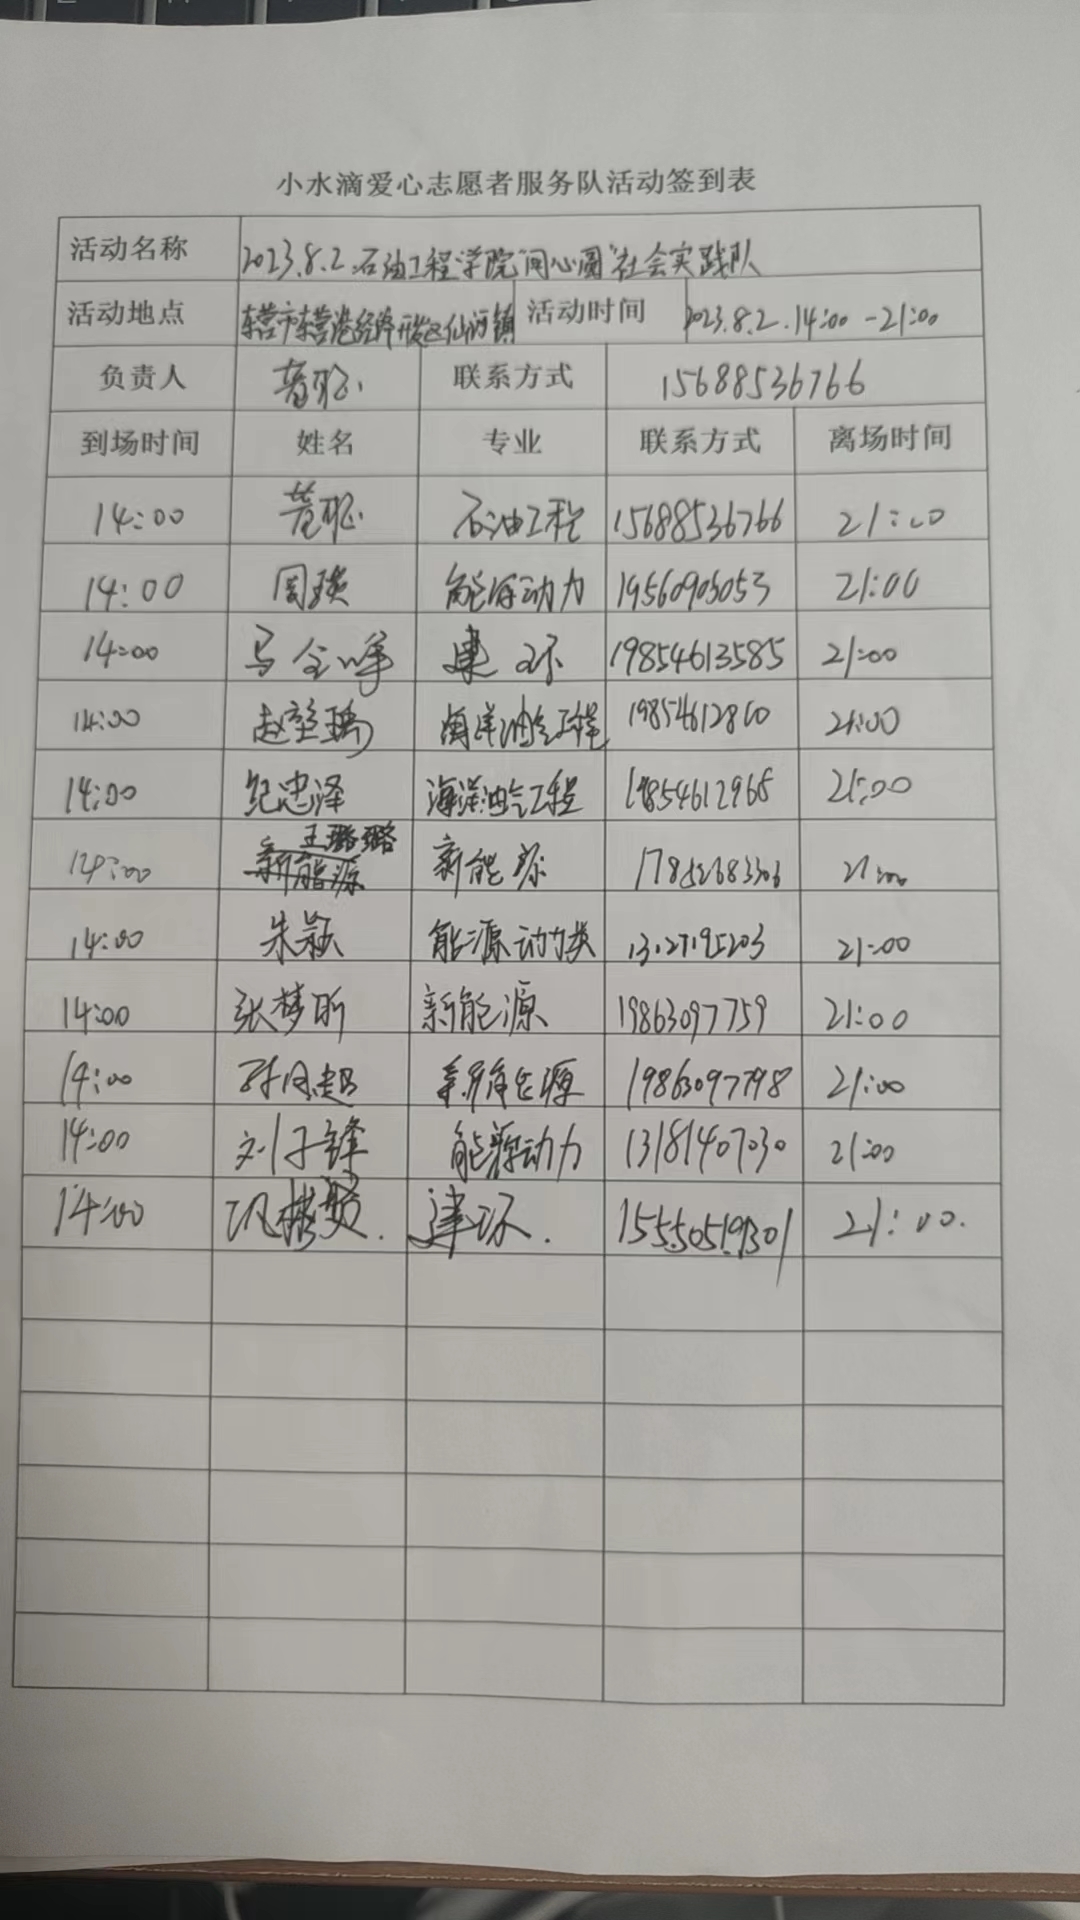 小水滴爱心志愿者服务队活动签到表
活动名称 2023.8.2.石油工程学院"同心圆"社会实践队
活动地点 东营市东营港经济开发区仙河镇 活动时间 2023.8.2.14:00-21:00
负责人 联系方式 15688536766
到场时间 姓名 专业 联系方式 离场时间
14:00 石油工程 15688536766 21:00
14:00 周瑛 能源动力 19560903053 21:00
14:00 马金峰 建环 19854613585 21:00
14:00 海洋油气工程 21:00
14:00 纪忠泽 海洋油气工程 19854612968 21:00
14:00 王璐璐 新能源 17852683306 21:00
14:00 朱颖 能源动力类 21:00
14:00 张梦昕 新能源 19863097759 21:00
14:00 新能源 19863097798 21:00
14:00 刘子锋 能源动力 13181407030 21:00
14:00 建环. 15550519301 21:00.